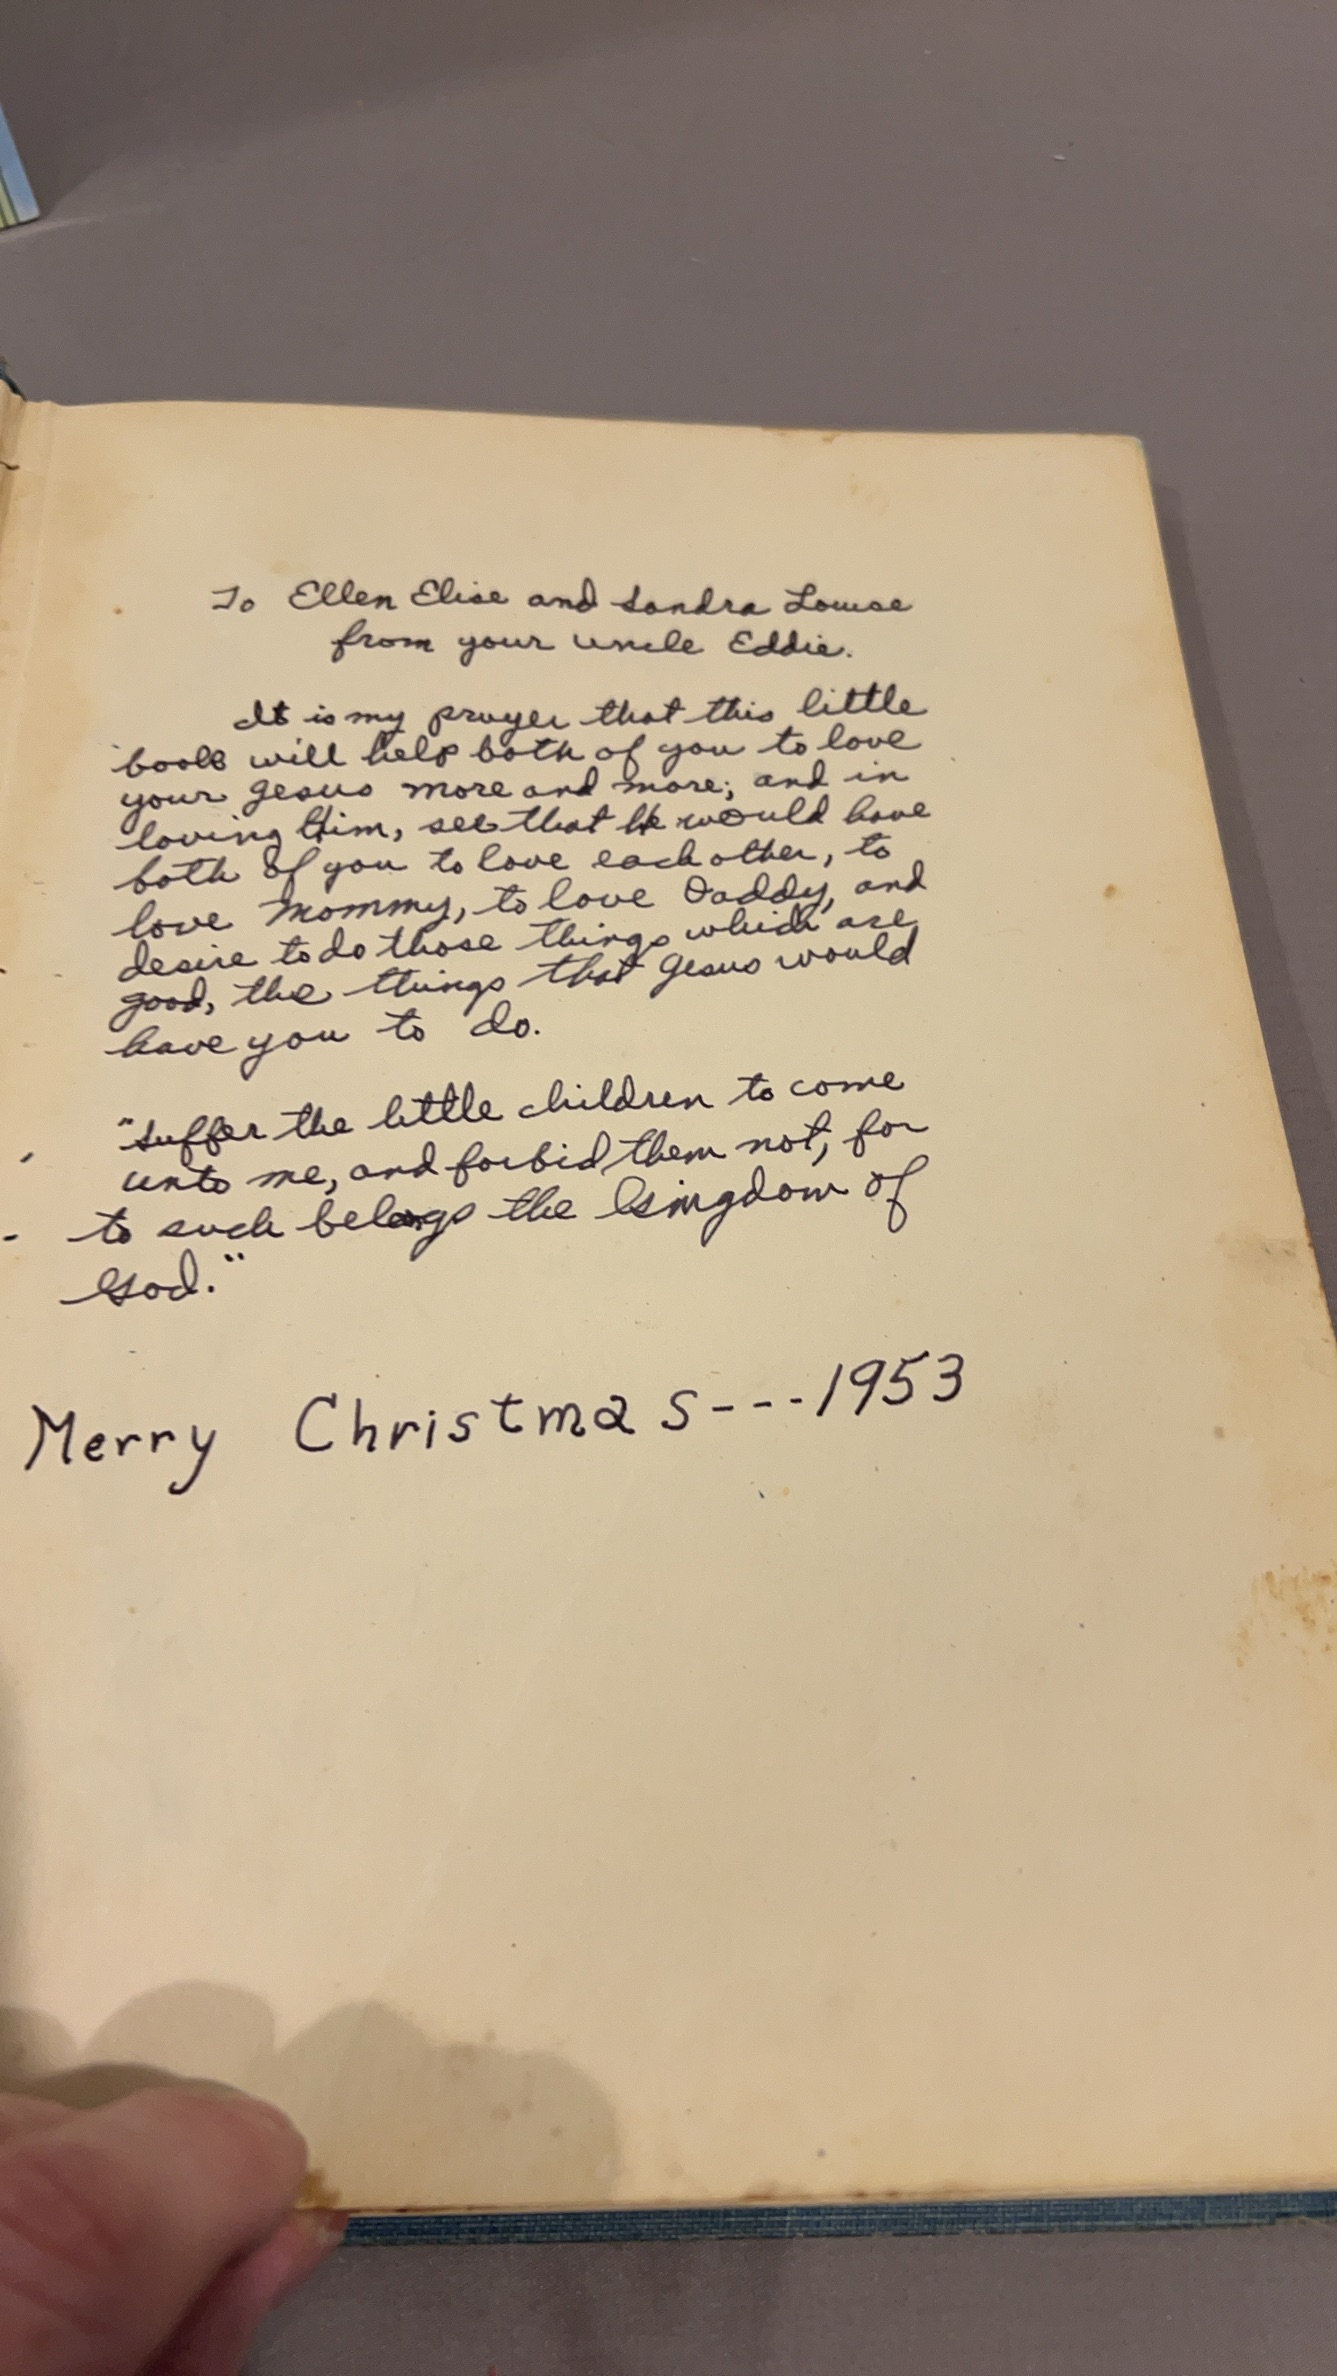 To Ellen Elise and Sandra Louise
from your uncle Eddie.
It is my prayer that this little
book will help both of you to love
your Jesus more and more; and in
loving Him, see that He would have
both of you to love each other, to
love Mommy, to love Daddy, and
desire to do those things which are
good, the things that Jesus would
have you to do.
"Suffer the little children to come
unto me, and forbid them not, for
to such belongs the Kingdom of
God."
Merry Christmas---1953